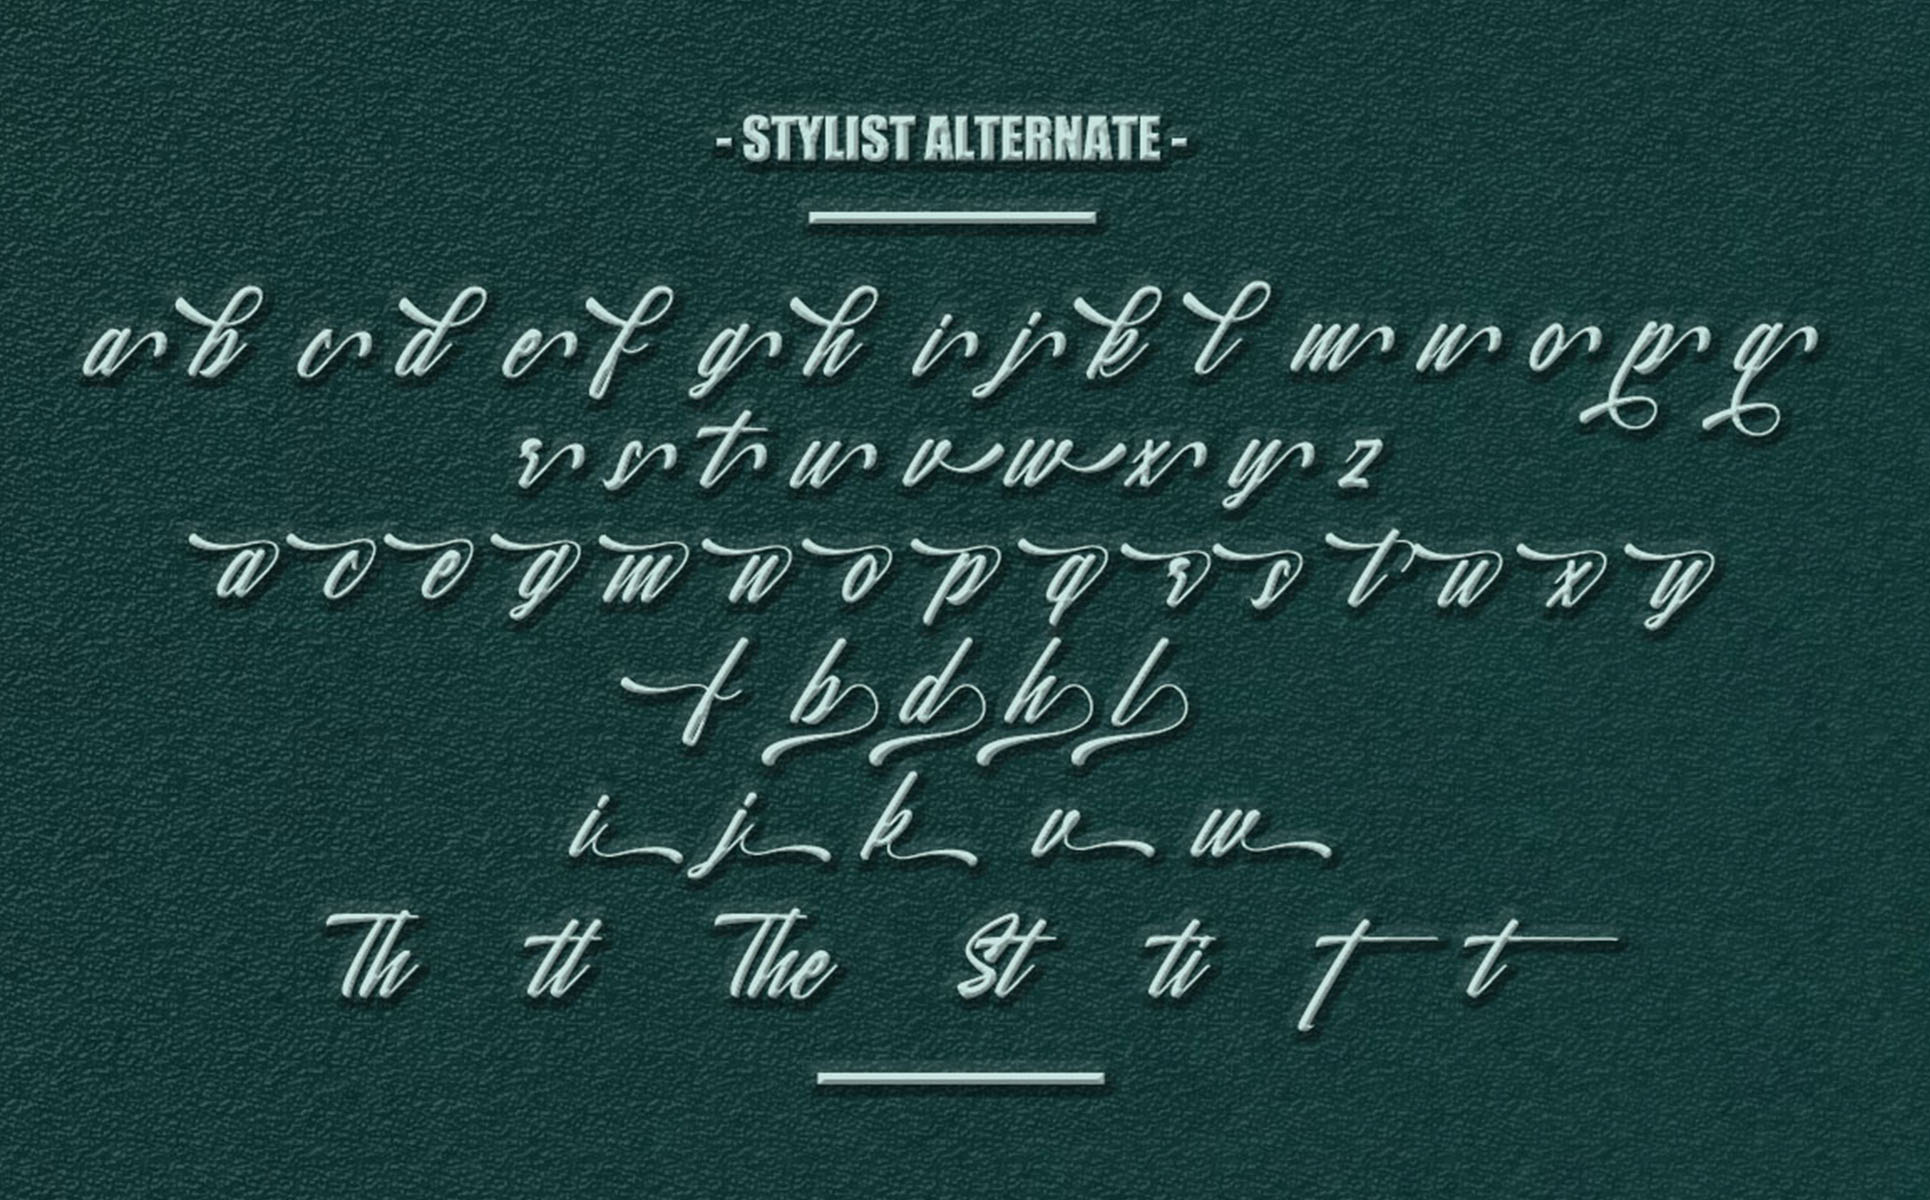 - STYLIST ALTERNATE -
a b c d e f g h i j k l m n o p q
r s t u v w x y z
a c e g m n o p q r s t u x y
f b d h l
i j k v w
Th tt The St ti T t